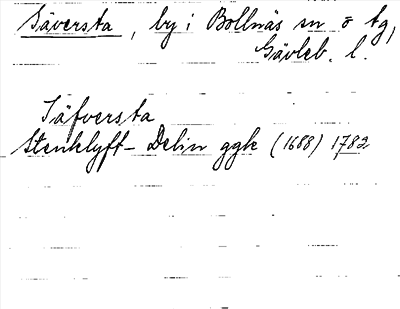 Säversta, by i Bollnäs sn o tg,
Gävleb. l.
Säfversta
Stenklyft- Delin ggk (1688) 1782